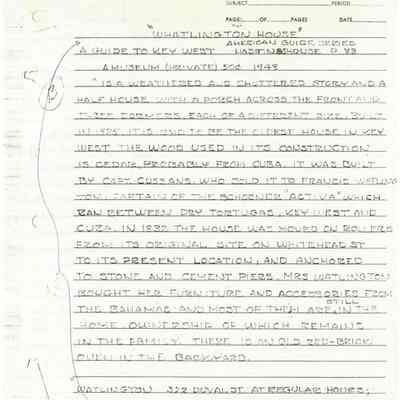 SUBJECT PERIOD
PAGE: OF PAGES DATE
"WHATLINGTON HOUSE"
AMERICAN GUIDE SERIES
A GUIDE TO KEY WEST HASTINGS HOUSE P. 83
A MUSEUM (PRIVATE) 50¢ 1948
"IS A WEATHERED AND SHUTTERED STORY AND A
HALF HOUSE WITH A PORCH ACROSS THE FRONT AND
THREE DORMERS, EACH OF A DIFFERENT SIZE. BUILT
IN 1825, IT IS SAID TO BE THE OLDEST HOUSE IN KEY
WEST. THE WOOD USED IN ITS CONSTRUCTION
IS CEDAR, PROBABLY FROM CUBA. IT WAS BUILT
BY CAPT. COSSANS, WHO SOLD IT TO FRANCIS WATLING
TON, CAPTAIN OF THE SCHOONER "ACTIVA" WHICH
RAN BETWEEN DRY TORTUGAS, KEY WEST AND
CUBA. IN 1832 THE HOUSE WAS MOVED ON ROLLERS
FROM ITS ORIGINAL SITE ON WHITEHEAD ST
TO ITS PRESENT LOCATION, AND ANCHORED
TO STONE AND CEMENT PIERS. MRS WATLINGTON
BOUGHT HER FURNITURE AND ACCESSORIES FROM
THE BAHAMAS AND MOST OF THEM ARE STILL IN THE
HOME, OWNERSHIP OF WHICH REMAINS
IN THE FAMILY. THERE IS AN OLD RED-BRICK
OVEN IN THE BACKYARD.
WATLINGTON 322 DUVAL ST AT REGULAR HOURS;